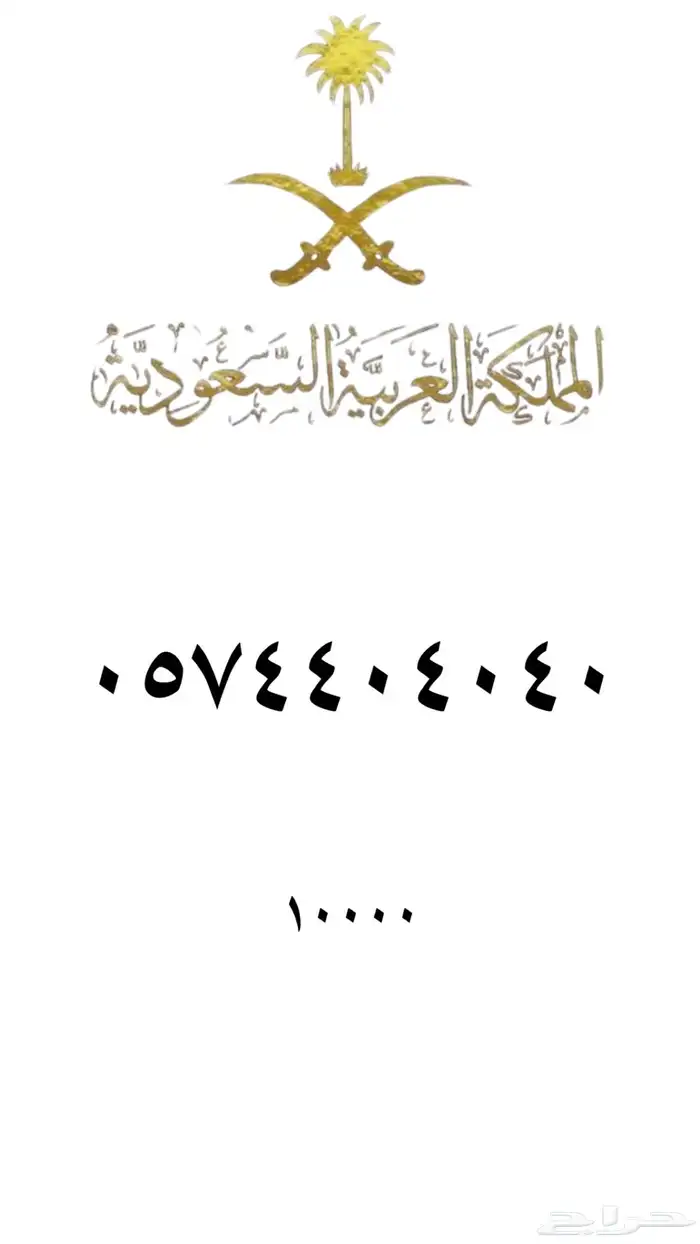 المملكة العربية السعودية
٠٥٧٤٤٠٤٠٤٠
١٠٠٠٠
حراج